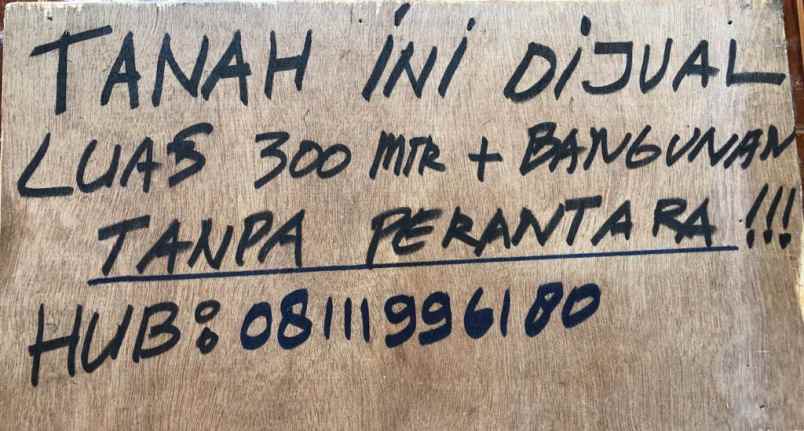 TANAH INI DIJUAL
LUAS 300 MTR + BANGUNAN
TANPA PERANTARA !!!
HUB: 08111996180